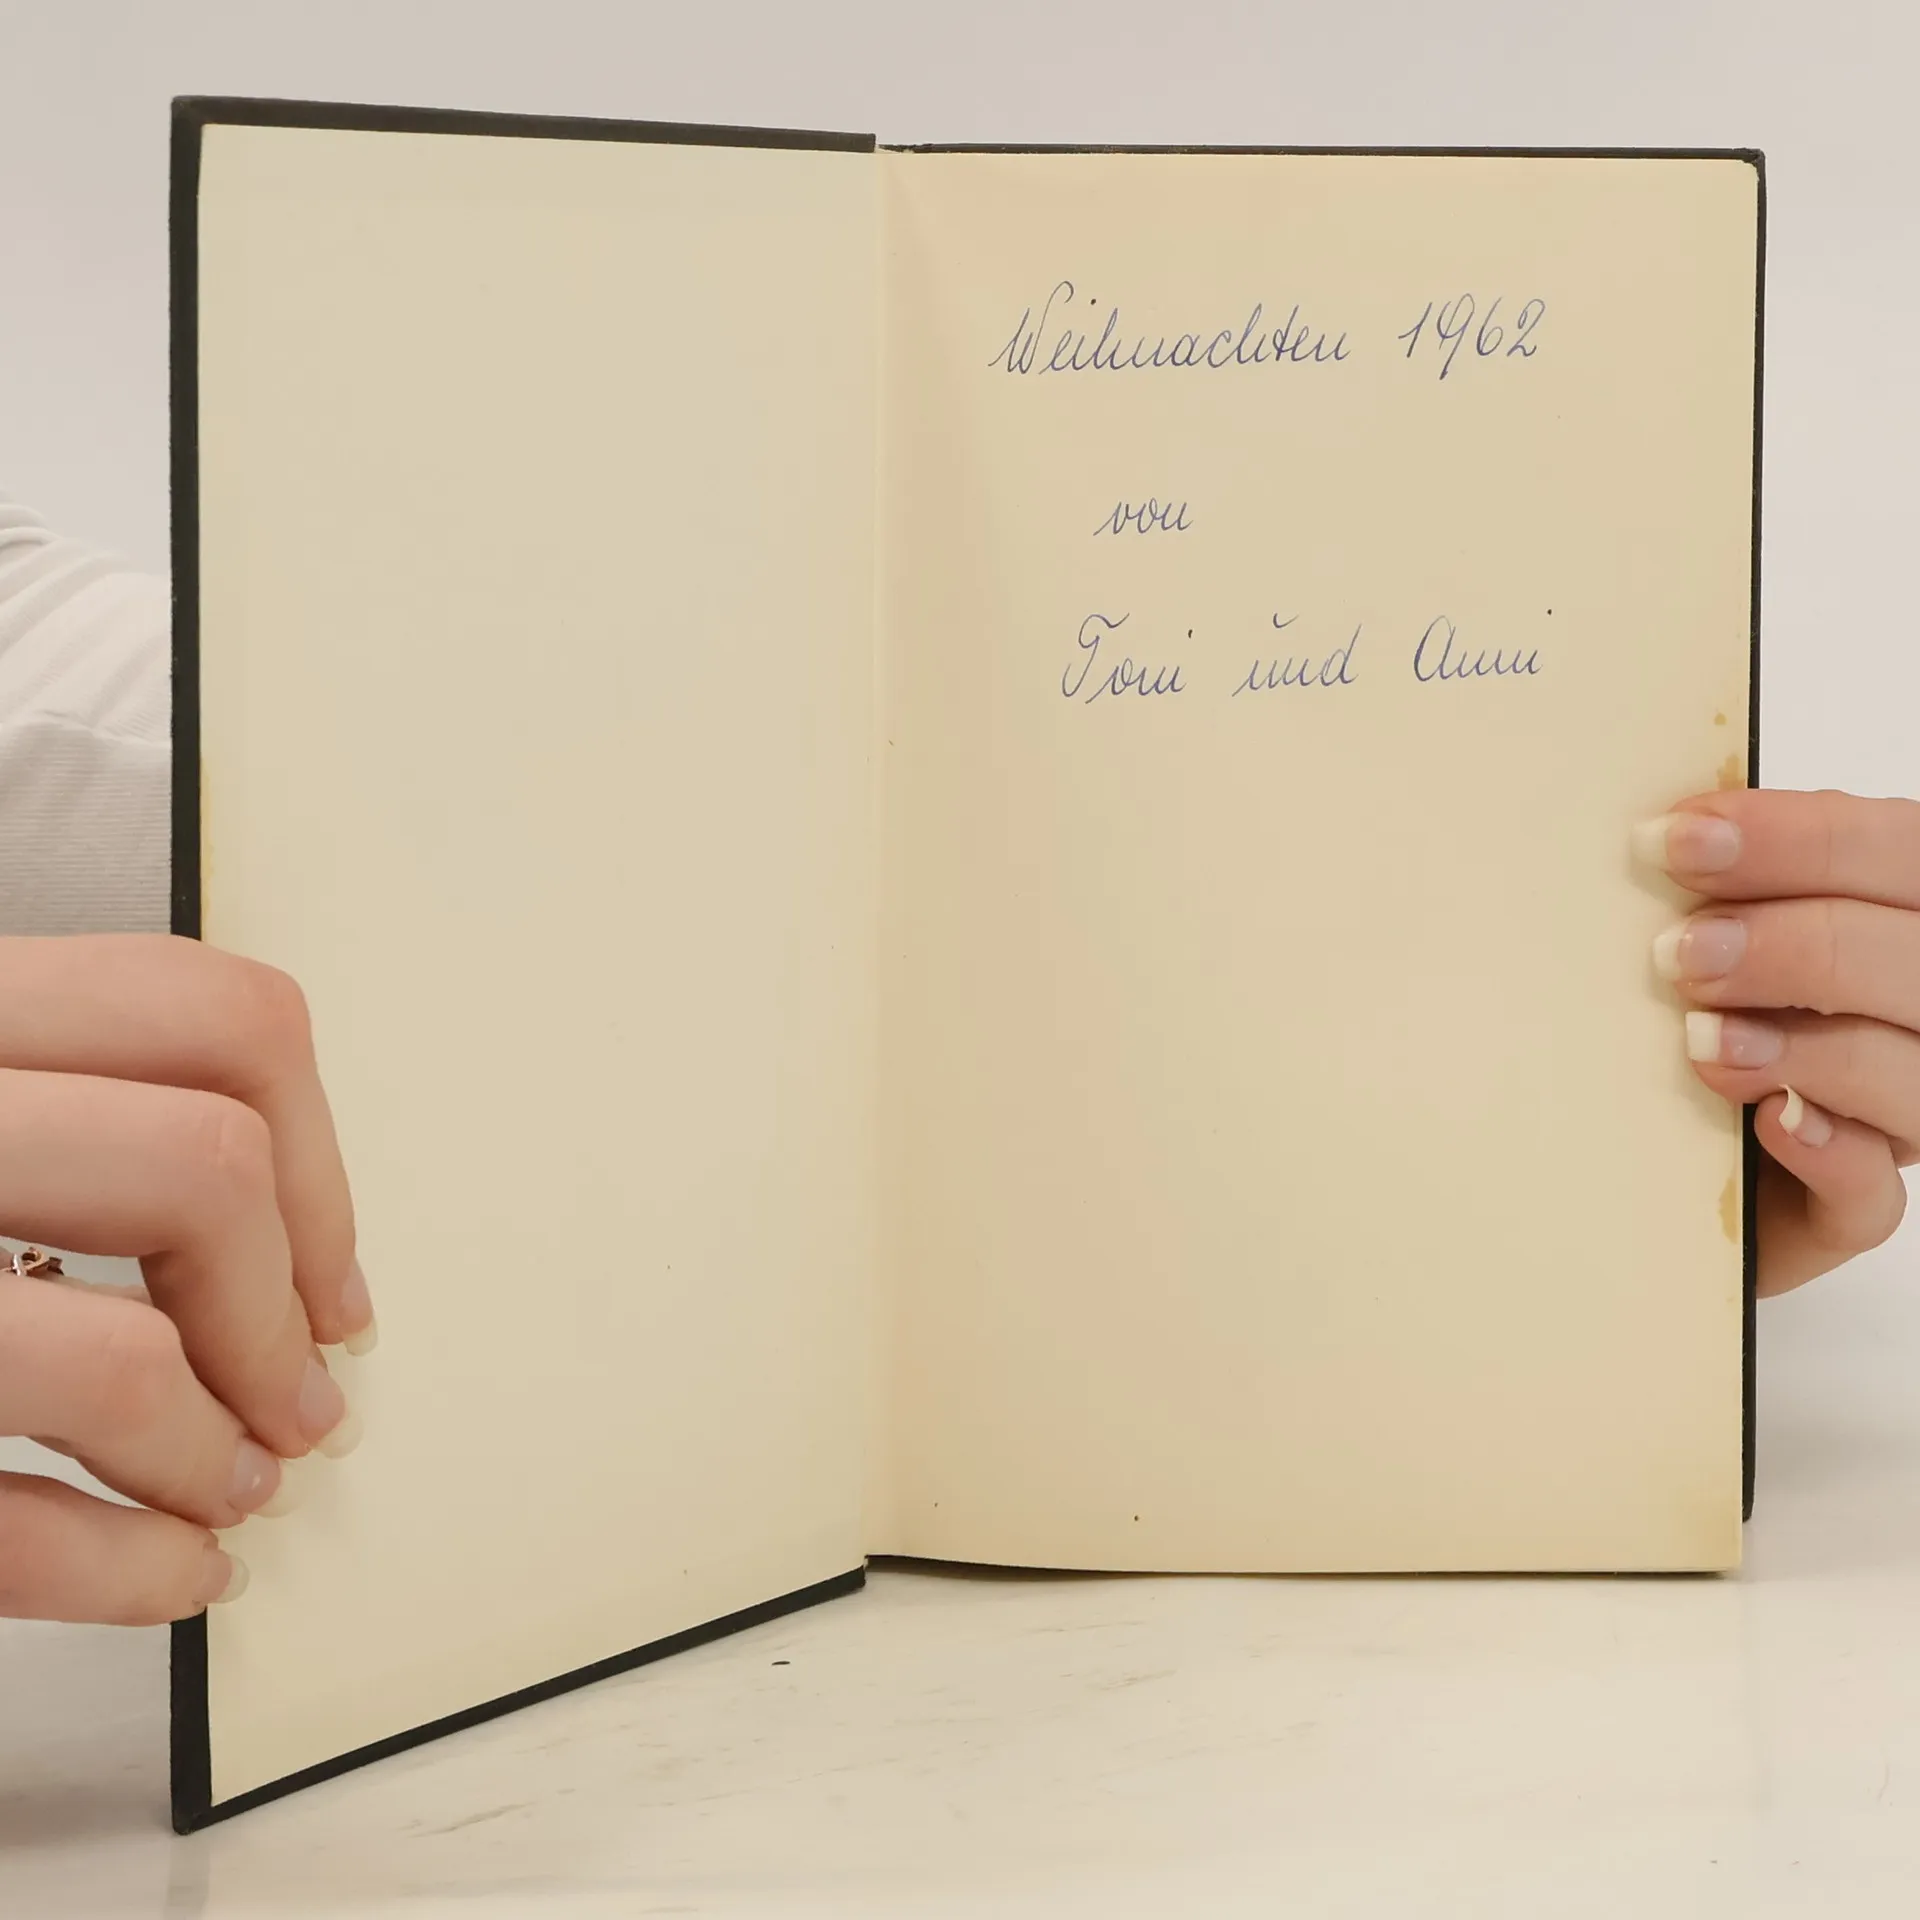 Weihnachten 1962
von
Toni und Anni